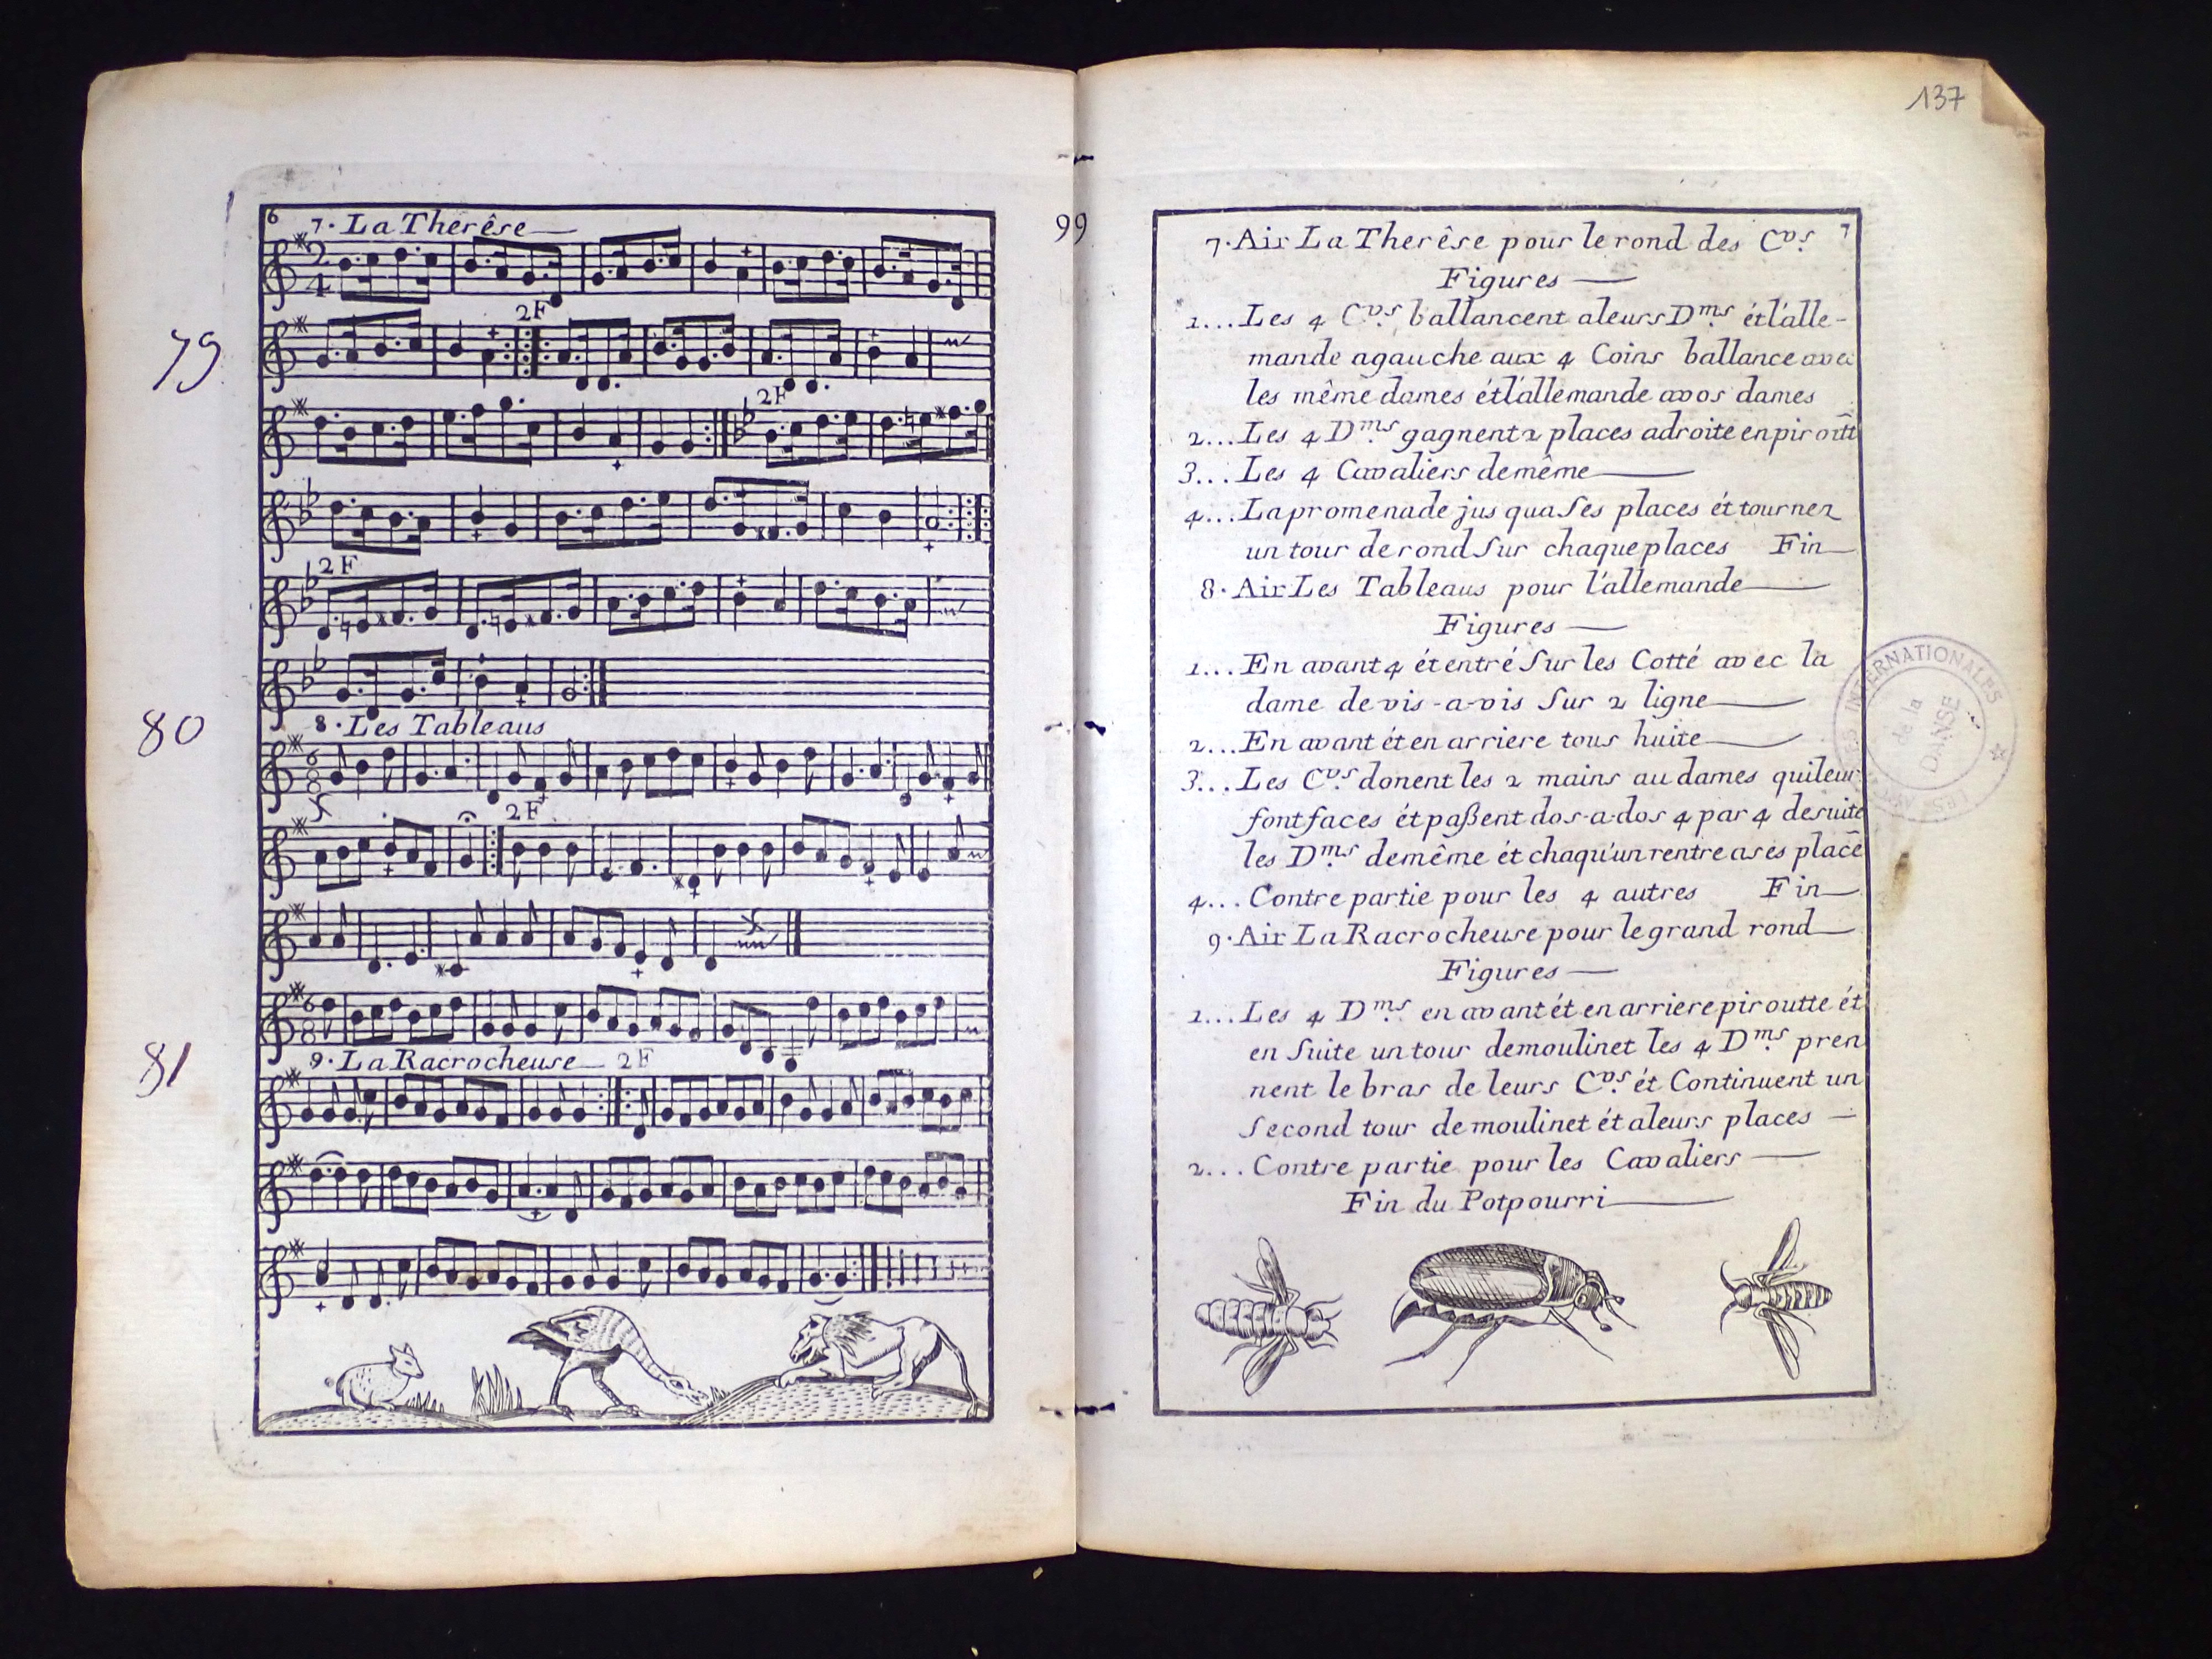 6
7. La Therêse
2F
79
2F
2F
80
8. Les Tableaus
2F
81
9. La Racrocheuse 2F
99
137
7. Air La Therêse pour le rond des Cvs. 7
Figures
1... Les 4 Cvs. ballancent a leurs Dms. ét l'alle-
mande a gauche aux 4 Coins ballance avec
les même dames ét l'allemande avos dames
2... Les 4 Dms. gagnent 2 places adroite en piroitt
3... Les 4 Cavaliers demême
4... La promenade jus qua ses places ét tournez
un tour de rond sur chaque places Fin
8. Air Les Tableaus pour l'allemande
Figures
1... En avant 4 ét entré sur les Cotté avec la
dame de vis-a-vis sur 2 ligne
2... En avant ét en arriere tous huite
3... Les Cvs. donent les 2 mains au dames qui leur
font faces ét paßent dos-a-dos 4 par 4 de suite
les Dms. demême ét chaqu'un rentre a ses place
4... Contre partie pour les 4 autres Fin
9. Air La Racrocheuse pour le grand rond
Figures
1... Les 4 Dms. en avant ét en arriere piroutte ét
en suite un tour demoulinet les 4 Dms. pren
nent le bras de leurs Cvs. ét Continuent un
second tour de moulinet ét a leurs places
2... Contre partie pour les Cavaliers
Fin du Potpourri
INTERNATIONALES
de la
DANSE